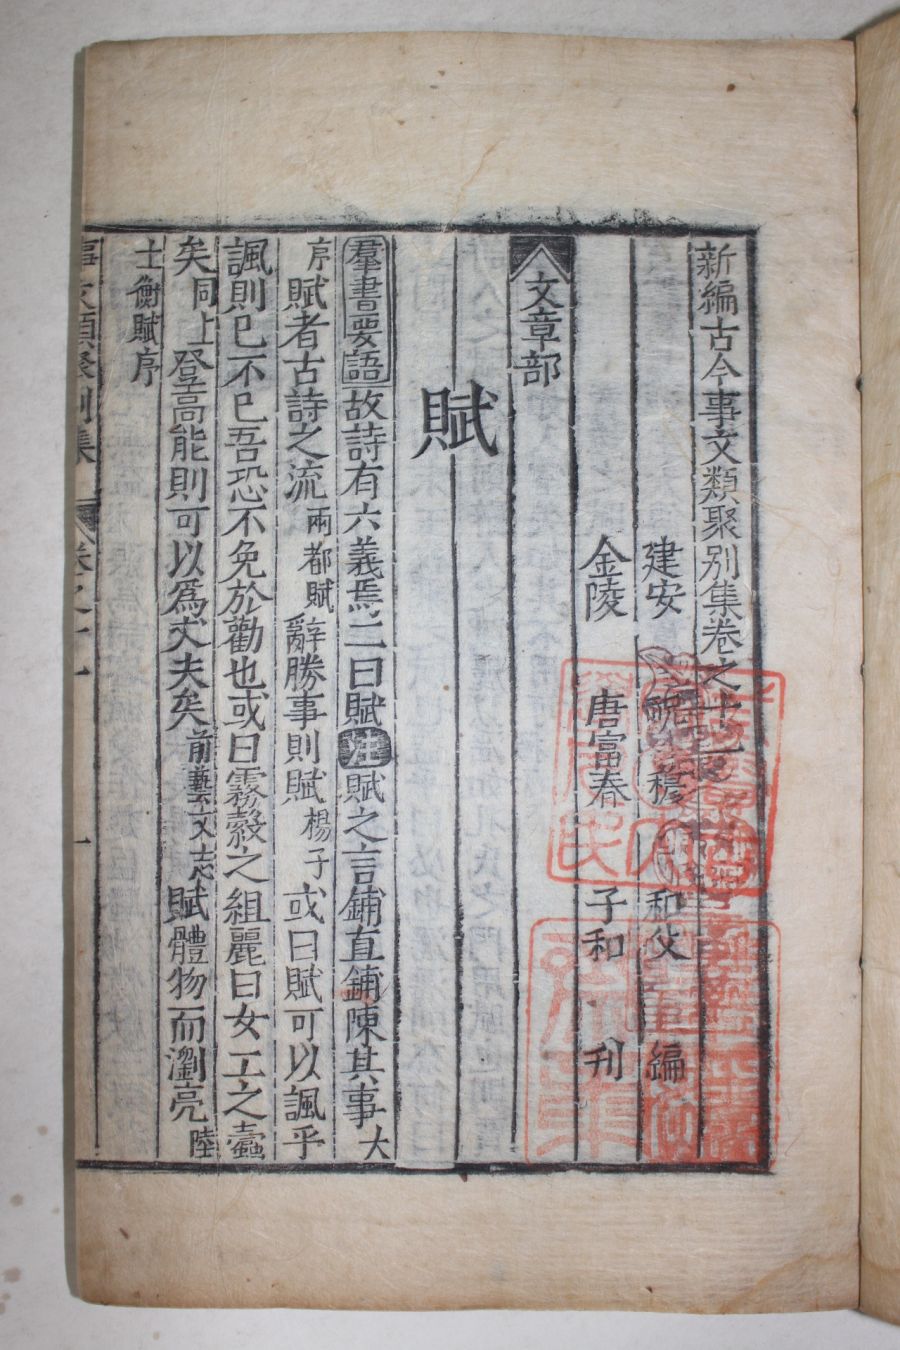 新編古今事文類聚別集卷之十一
建安 祝穆 和父 編
金陵 唐富春 子和 刊
文章部
賦
羣書要語故詩有六義焉二曰賦注賦之言鋪直鋪陳其事大
序賦者古詩之流兩都賦辭勝事則賦楊子或曰賦可以諷乎
諷則已不已吾恐不免於勸也或曰霧縠之組麗曰女工之蠹
矣同上登高能則可以爲丈夫矣前藝文志賦體物而瀏亮陸
士衡賦序
事文類聚別集 卷之十一 一